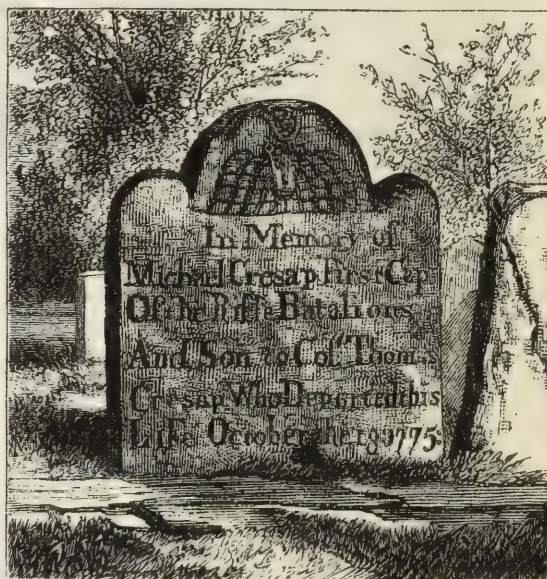 In Memory of
Michael Cresap First Cap
Of The Riffle Batalions
And Son to Col! Thomas
Cresap Who Departed this
Life October the 18 1775